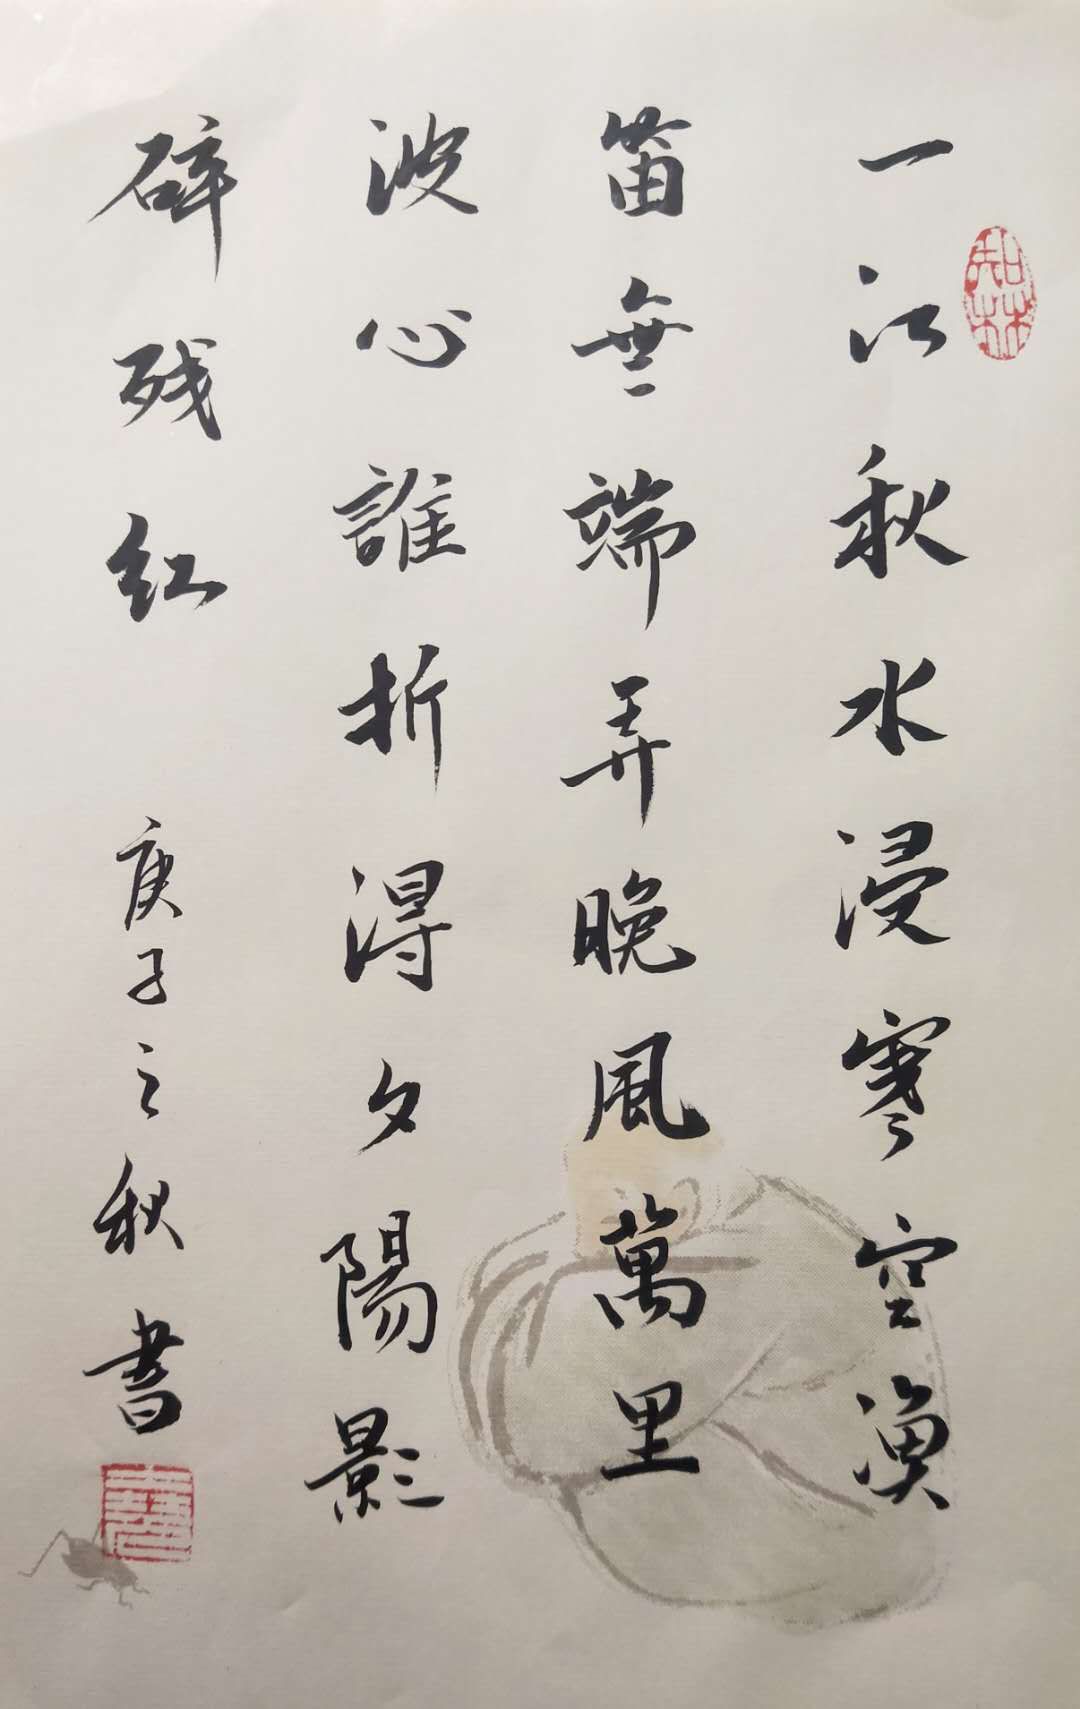 一江秋水浸寒空漁
笛無端弄晚風萬里
波心誰折得夕陽影
碎残红 庚子之秋書